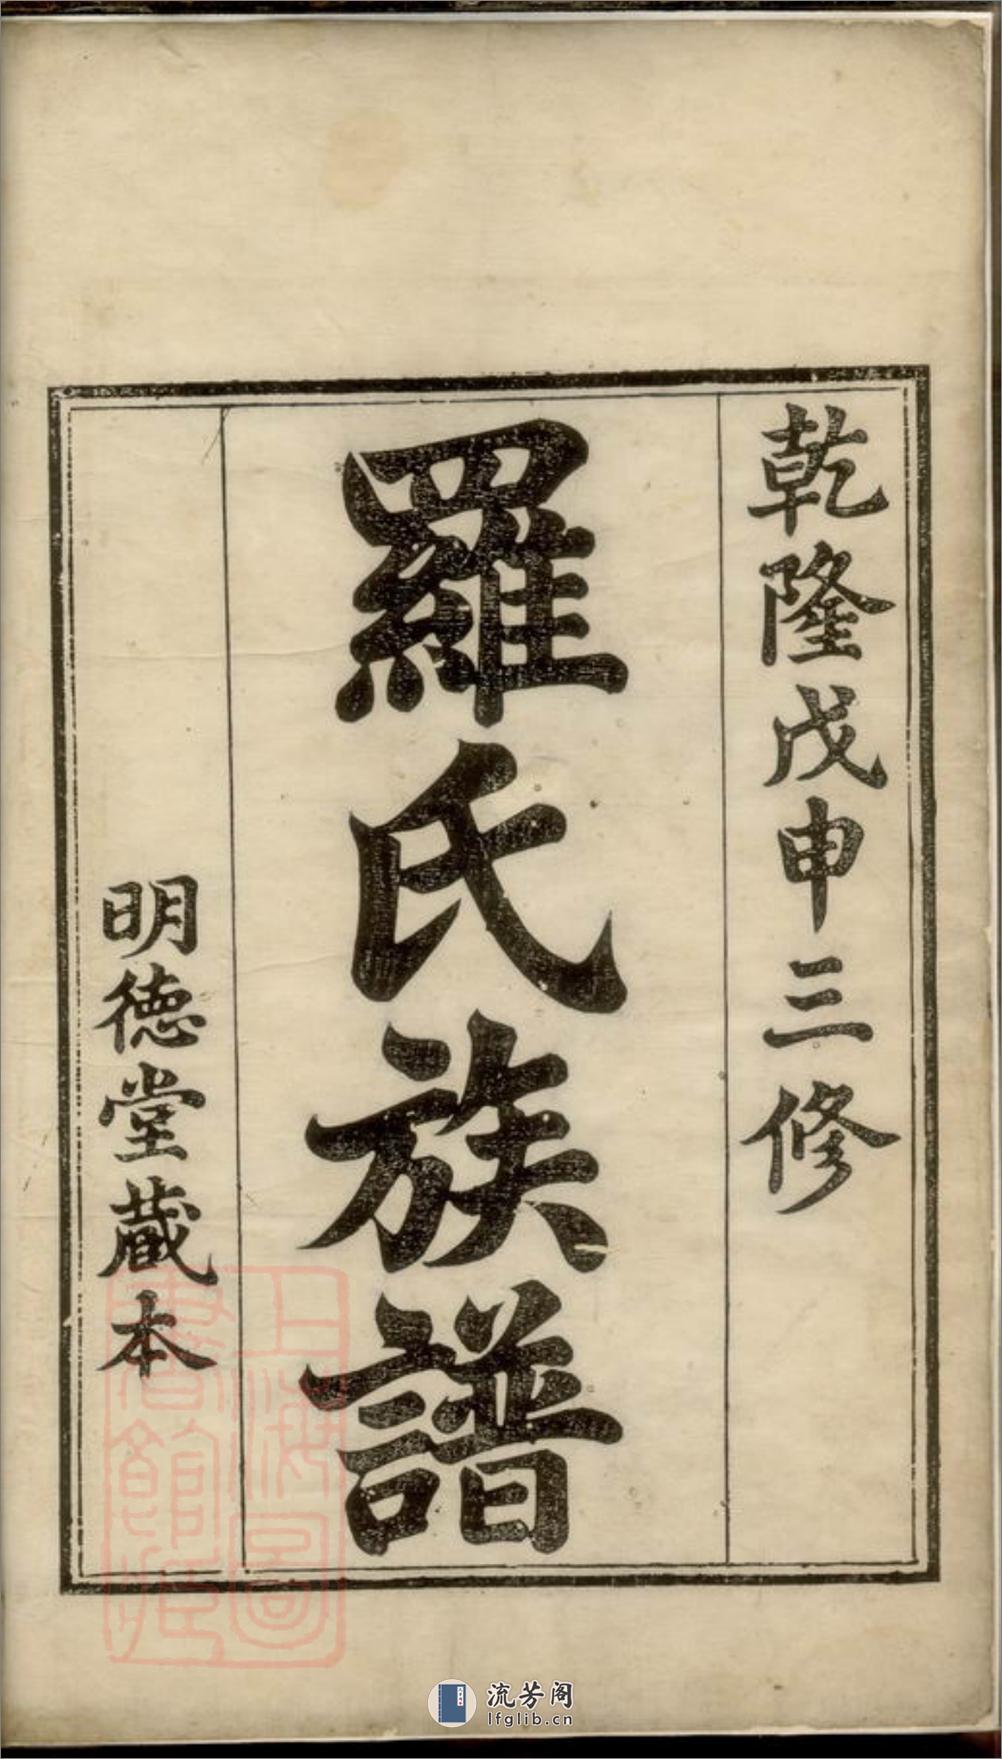 乾隆戊申三修
羅氏族譜
明德堂藏本
上海圖
書館藏
流芳阁
lfglib.cn